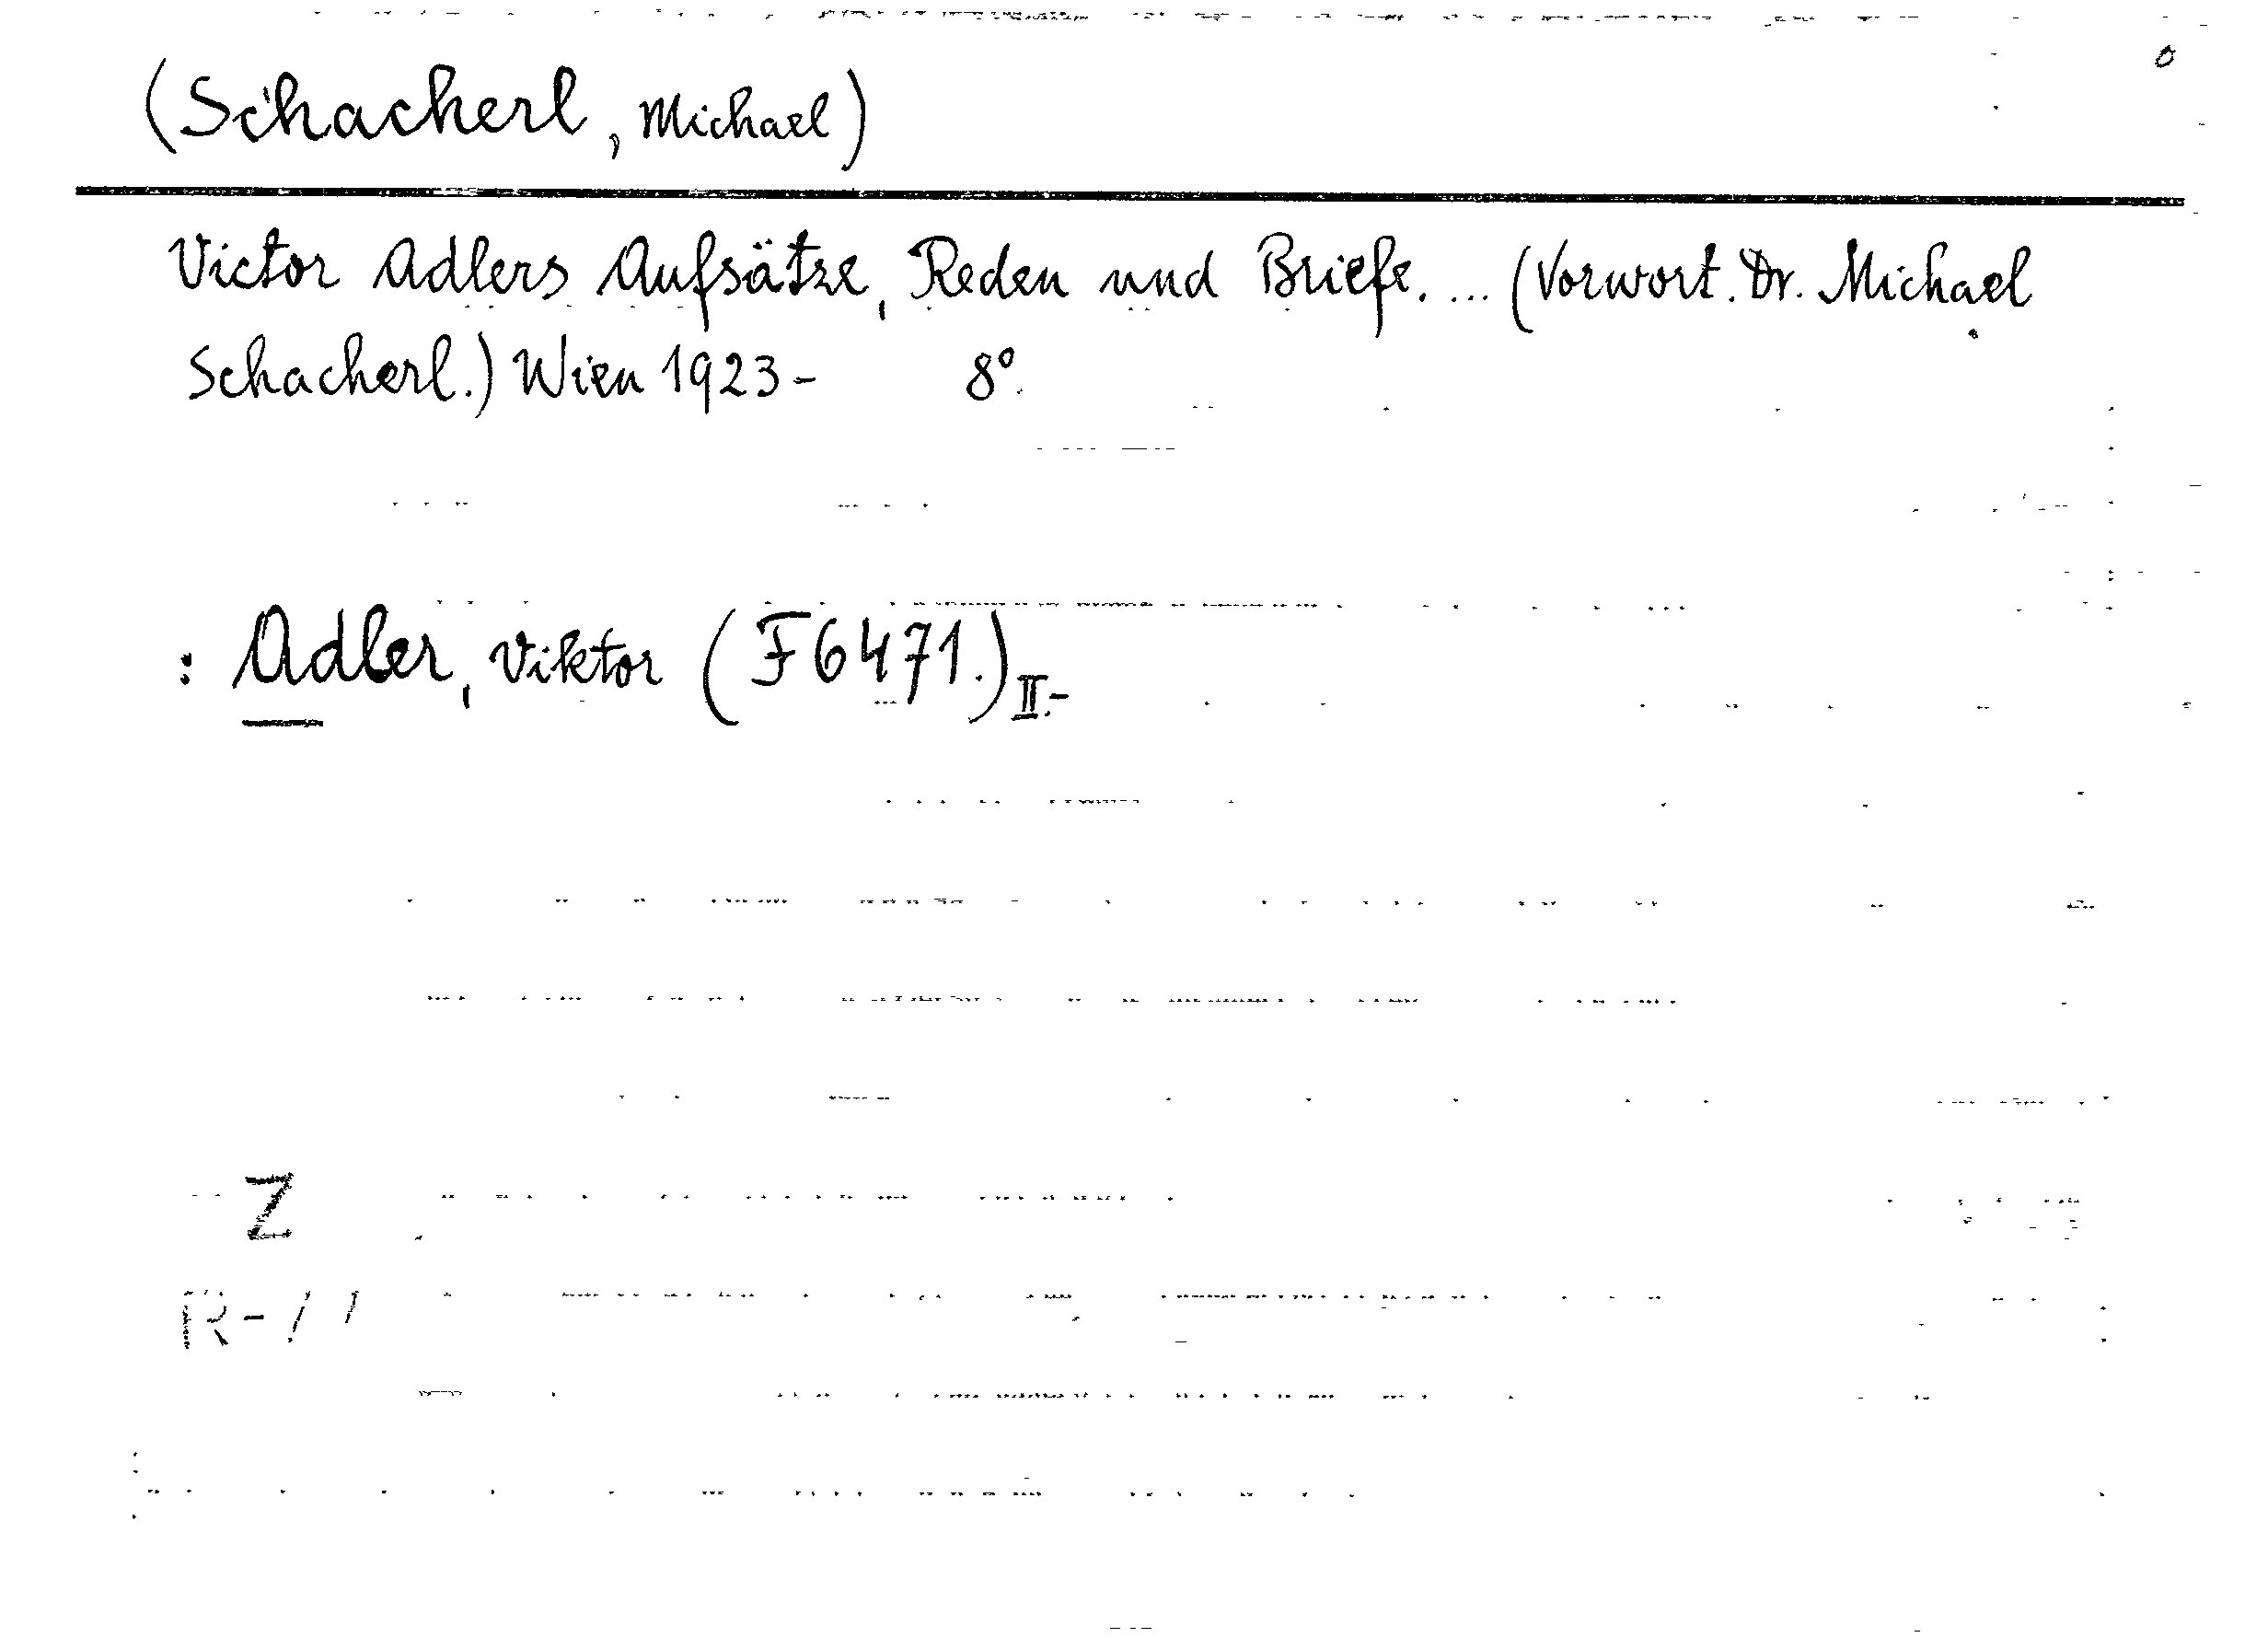 (Schacherl, Michael)
Victor Adlers Aufsätze, Reden und Briefe. ... (Vorwort. Dr. Michael
Schacherl.) Wien 1923- 8°
: Adler, Viktor (F6471.) II.-
Z